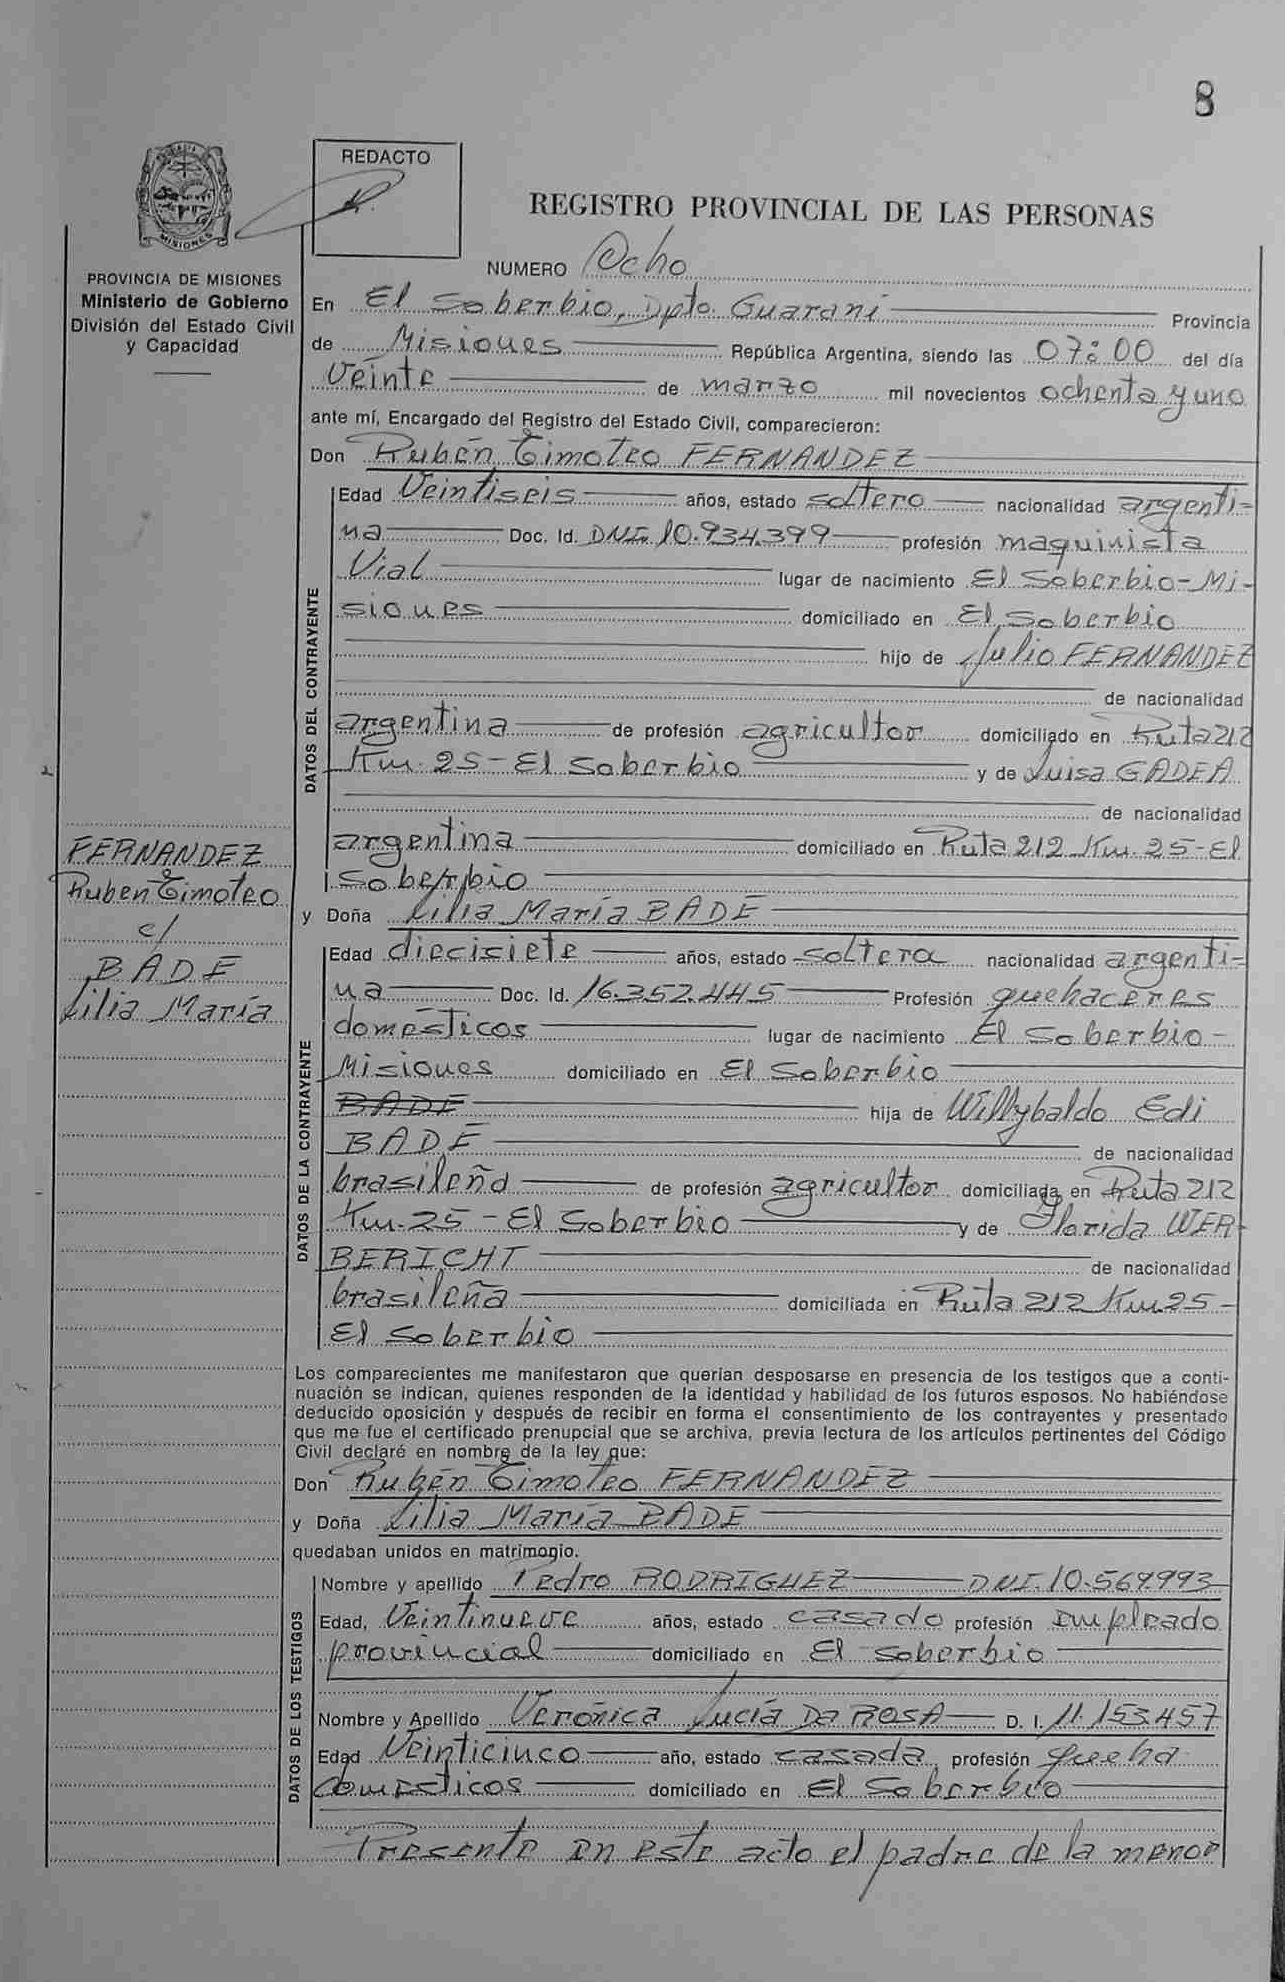 8
REDACTO
REGISTRO PROVINCIAL DE LAS PERSONAS
MISIONES
PROVINCIA DE MISIONES
Ministerio de Gobierno
División del Estado Civil
y Capacidad
NUMERO Ocho
En El Soberbio, Dpto. Guaraní Provincia
de Misiones República Argentina, siendo las 07:00 del día
Veinte de marzo mil novecientos ochenta y uno
ante mí, Encargado del Registro del Estado Civil, comparecieron:
Don Rubén Timoteo FERNANDEZ
DATOS DEL CONTRAYENTE
Edad Veintiseis años, estado soltero nacionalidad argenti-
na Doc. Id. DNI. 10.934.399 profesión maquinista
Vial lugar de nacimiento El Soberbio-Mi-
siones domiciliado en El Soberbio
hijo de Julio FERNANDEZ
de nacionalidad
argentina de profesión agricultor domiciliado en Ruta 212
Km. 25 - El Soberbio y de Luisa GADEA
de nacionalidad
argentina domiciliado en Ruta 212 Km. 25 - El
Soberbio
FERNANDEZ
Ruben Timoteo
c/
BADE
Lilia María
y Doña Lilia María BADE
DATOS DE LA CONTRAYENTE
Edad diecisiete años, estado soltera nacionalidad argenti-
na Doc. Id. 16.352.445 Profesión quehaceres
domésticos lugar de nacimiento El Soberbio -
Misiones domiciliado en El Soberbio
BADE hija de Willybaldo Edi
BADE de nacionalidad
brasileña de profesión agricultor domiciliada en Ruta 212
Km. 25 - El Soberbio y de Florida WER-
BERICHT de nacionalidad
brasileña domiciliada en Ruta 212 Km 25 -
El Soberbio
Los comparecientes me manifestaron que querían desposarse en presencia de los testigos que a conti-
nuación se indican, quienes responden de la identidad y habilidad de los futuros esposos. No habiéndose
deducido oposición y después de recibir en forma el consentimiento de los contrayentes y presentado
que me fue el certificado prenupcial que se archiva, previa lectura de los artículos pertinentes del Código
Civil declaré en nombre de la ley que:
Don Rubén Timoteo FERNANDEZ
y Doña Lilia María BADE
quedaban unidos en matrimonio.
DATOS DE LOS TESTIGOS
Nombre y apellido Pedro RODRIGUEZ DNI. 10.569.993
Edad, Veintinueve años, estado casado profesión Empleado
provincial domiciliado en El Soberbio
Nombre y Apellido Verónica Lucía Da ROSA D. I. 11.153.457
Edad Veinticinco año, estado casada profesión queha
domésticos domiciliado en El Soberbio
Presente en este acto el padre de la menor